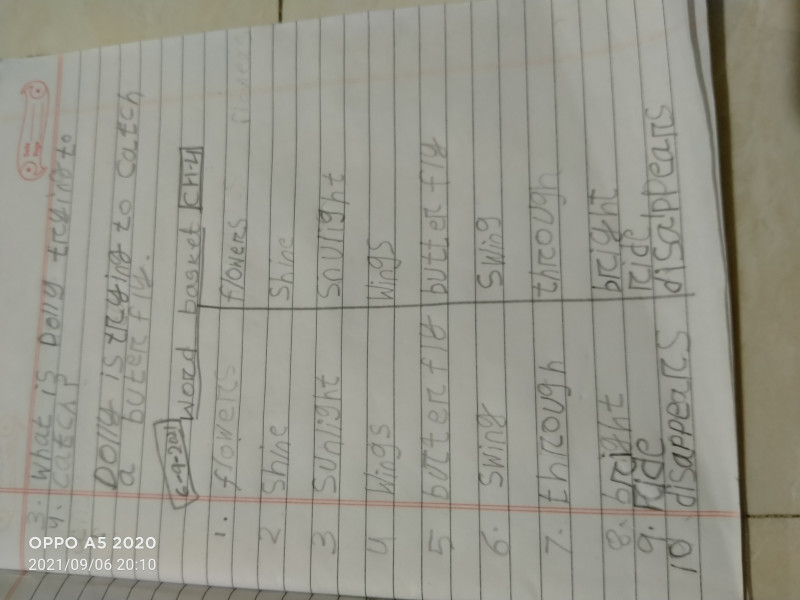 3. What is Dolly trying to
4. catch?
Dolly is trying to catch
a buterfly.
6-9-2021 Word basket CH-4
1. flowers flowers
2 Shine Shine
3 Sunlight Snulight
4 Wings Wings
5 butterfly butterfly
6. Swing Swing
7. through through
8. bright bright
9. ride ride
10 disappears disappears
OPPO A5 2020
2021/09/06 20:10